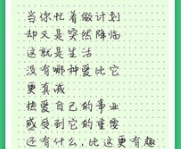 当你忙着做计划
却又是突然降临
这就是生活
没有哪种爱比它
更真诚
热爱自己的事业
感受到它的重要
还有什么，比这更有趣